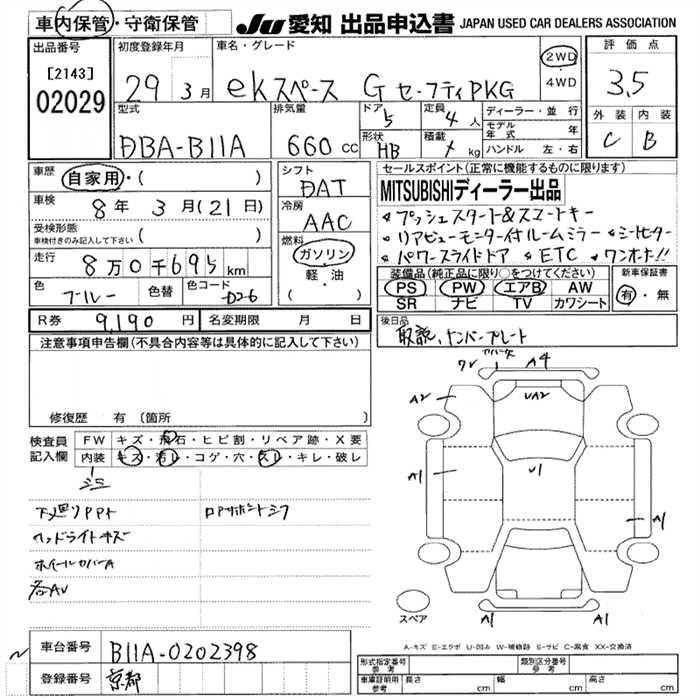 車内保管・守衛保管
JU 愛知 出品申込書 JAPAN USED CAR DEALERS ASSOCIATION
出品番号
[2143]
02029
初度登録年月
29年 3月
車名・グレード
ekスペース G セーフティPKG
2WD
4WD
評価点
3.5
外装 内装
C B
型式
DBA-B11A
排気量
660 cc
ドア
5
定員
4人
形状
HB
積載
kg
ディーラー・並行
モデル年式 年
ハンドル 左・右
車歴
自家用・( )
車検
8年 3月(21日)
受検形態
車検付きのみ記入して下さい ( )
走行
8万0千695km
色
ブルー
色替
色コード
D26
シフト
DAT
冷房
AAC
燃料
ガソリン・
軽・油
( )
セールスポイント(正常に機能するものに限ります)
MITSUBISHIディーラー出品
プッシュスタート&スマートキー
リアビューモニター付ルームミラー シートヒーター
パワースライドドア ETC ワンオーナー!!
装備品(純正品に限り○をつけてください)
PS PW エアB AW
SR ナビ TV カワシート
新車保証書
有・無
R券 9,190円
名変期限 月 日
後日品
取説、ナンバープレート
注意事項申告欄(不具合内容等は具体的に記入して下さい)
修復歴 有 (箇所 )
検査員記入欄
FW キズ・飛石・ヒビ割・リペア跡・X要
内装 キズ・汚レ・コゲ・穴・スレ・キレ・破レ
下廻りPPt
ヘッドライトキズ
ホイールカバーA
各AU
A4
A2
UA2
A1
U1
A1
A1
A1
スペア
A-キズ E-エクボ U-凹み W-補修跡 S-サビ C-腐食 XX-交換済
車台番号
B11A-0202398
登録番号
京都
形式指定番号 参考
類別区分番号 参考
車庫証明用 参考
長さ cm
幅 cm
高さ cm